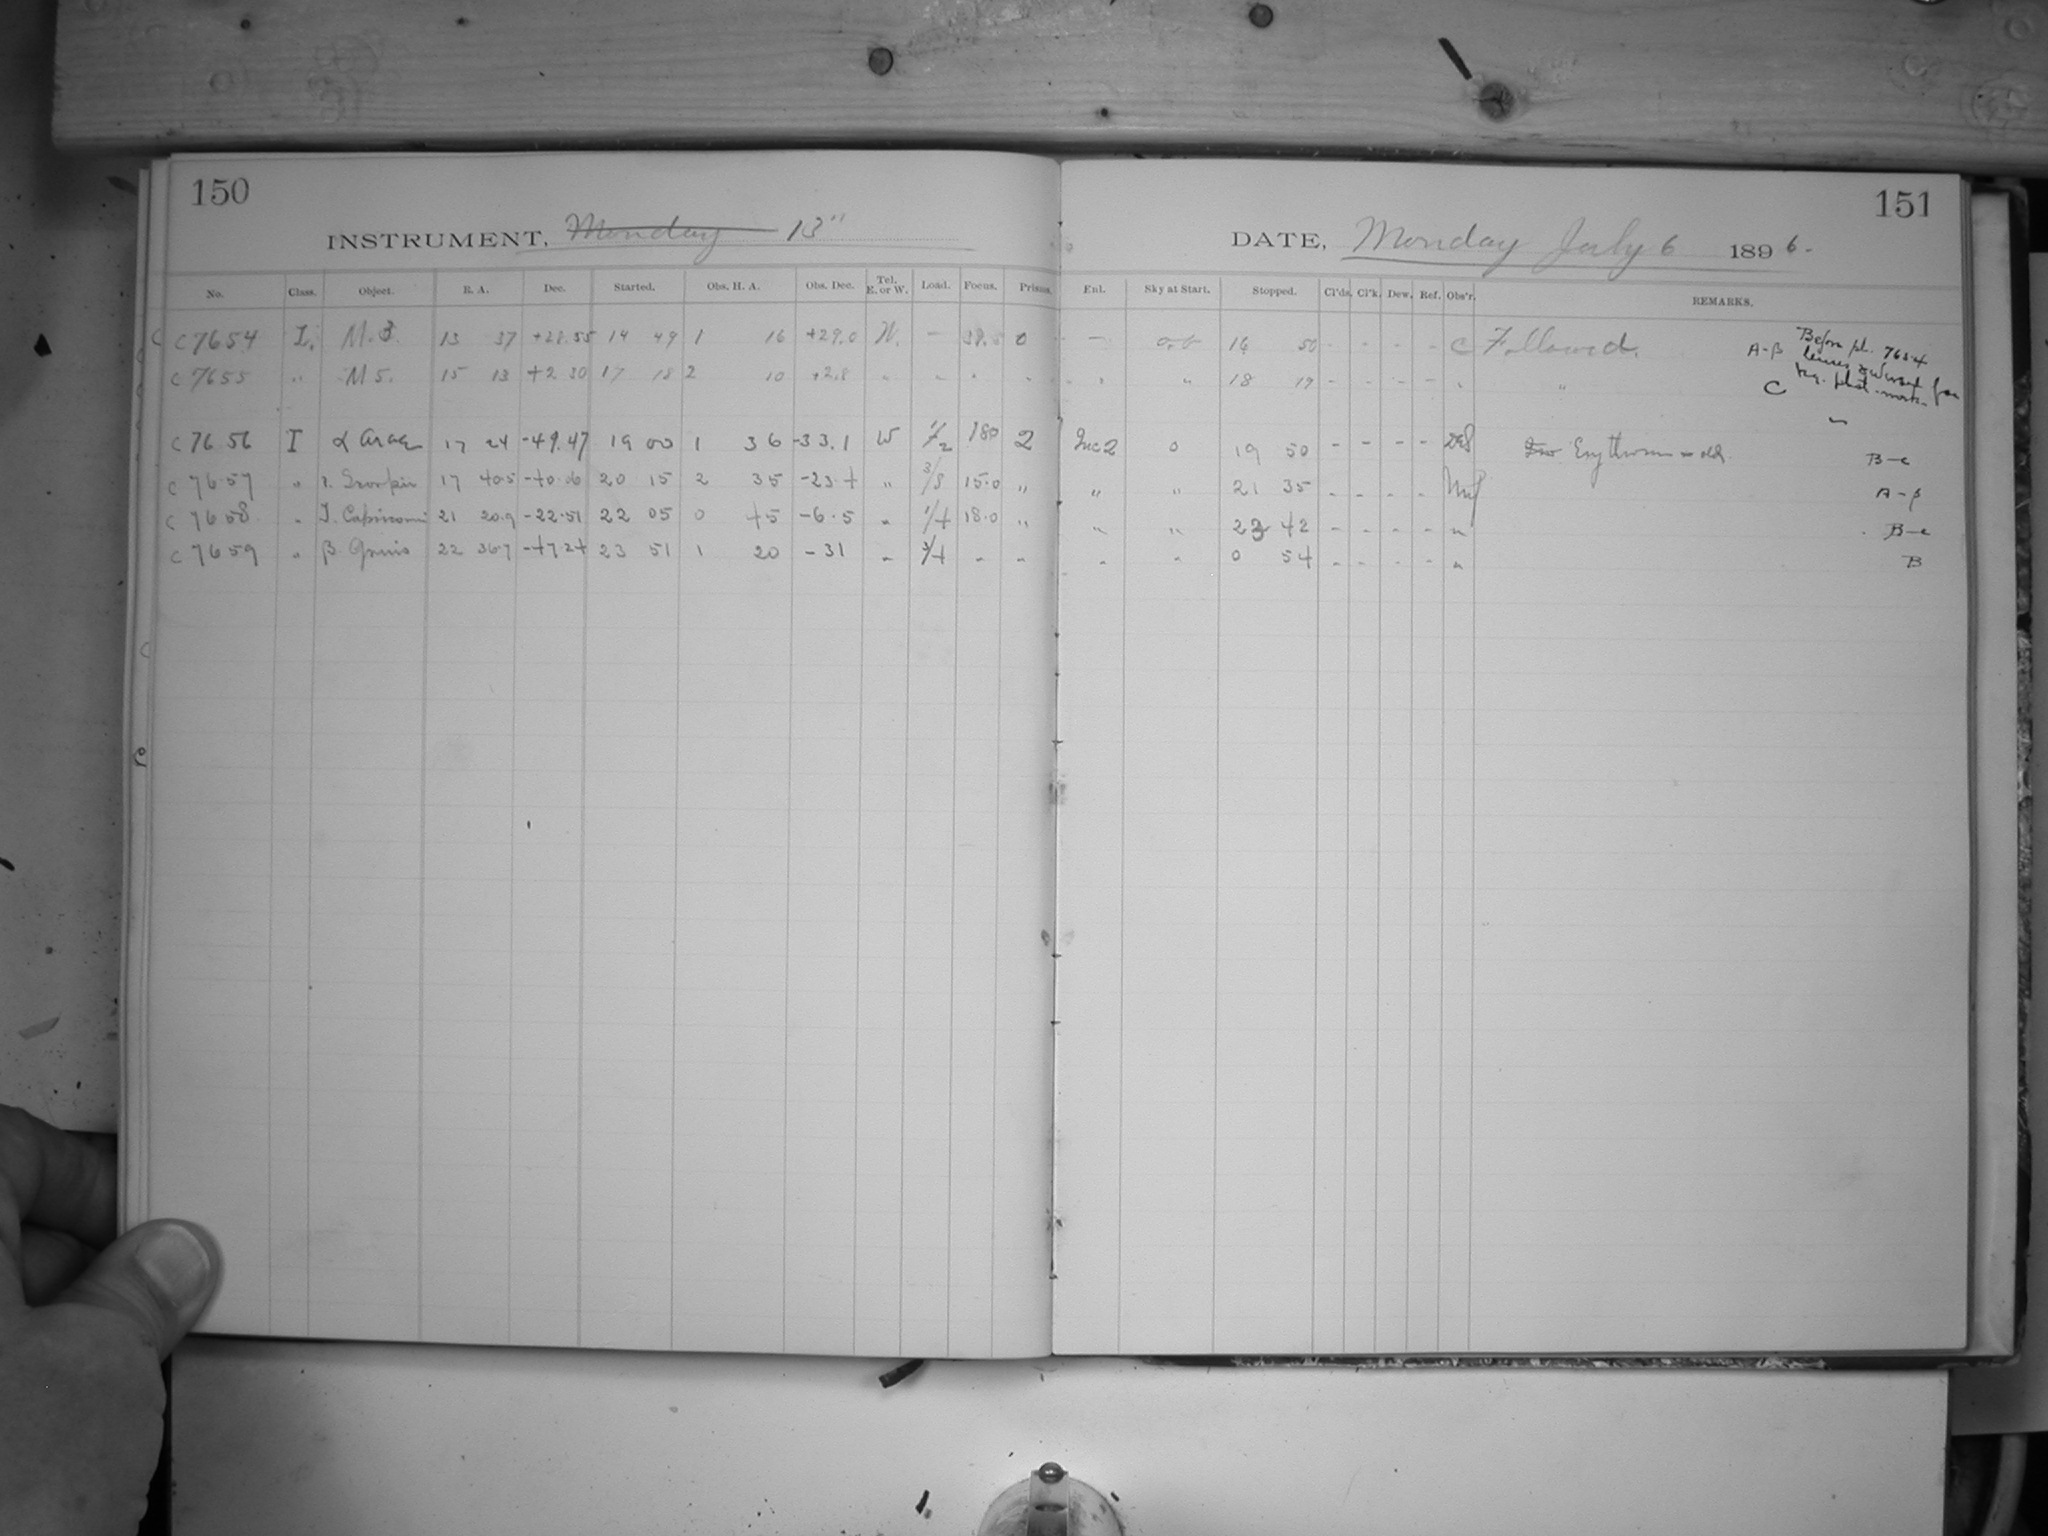 150
INSTRUMENT, Monday 13"
No. Class. Object. R. A. Dec. Started. Obs. H. A. Obs. Dec. Tel. E. or W. Load. Focus. Prisms.
C 7654 I. M. 3. 13 37 +28.55 14 49 1 16 +29.0 W. — 38.5 0
C 7655 " M 5. 15 13 +2 30 17 18 2 10 +2.8 " " " "
C 7656 I α Arae 17 24 -49.47 19 00 1 36 -33.1 W 1/2 180 2
C 7657 " Scorpii 17 40.5 -40.06 20 15 2 35 -23.4 " 3/8 15.0 "
C 7658 " Capricorni 21 20.9 -22.51 22 05 0 45 -6.5 " 1/4 18.0 "
C 7659 " β Gruis 22 36.7 -47.24 23 51 1 20 -31 " 3/4 " "
151
DATE, Monday July 6 1896.
Enl. Sky at Start. Stopped. Cl'ds. Cl'k. Dew. Ref. Obs'r. REMARKS.
— 16 50 - - - - C Followed. A-β Before pl. 7654
lenses
" " 18 19 - - - - " " C
Inc 2 0 19 50 - - - - Erythrosin B-c
" " 21 35 - - - - A-β
" " 23 42 - - - - " B-c
" " 0 54 - - - - " B